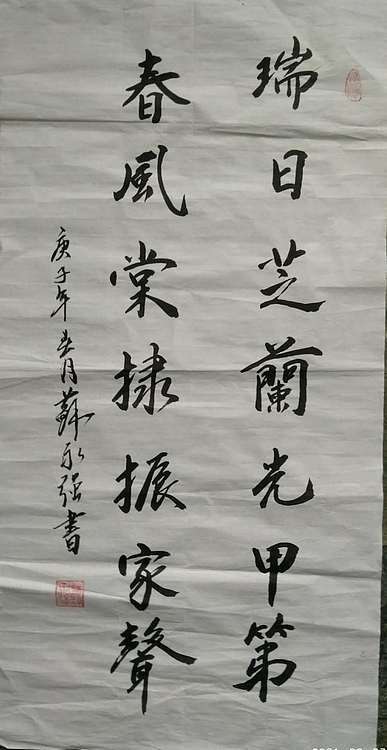 瑞日芝蘭光甲第
春風棠棣振家聲
庚子年春月蘇永强書